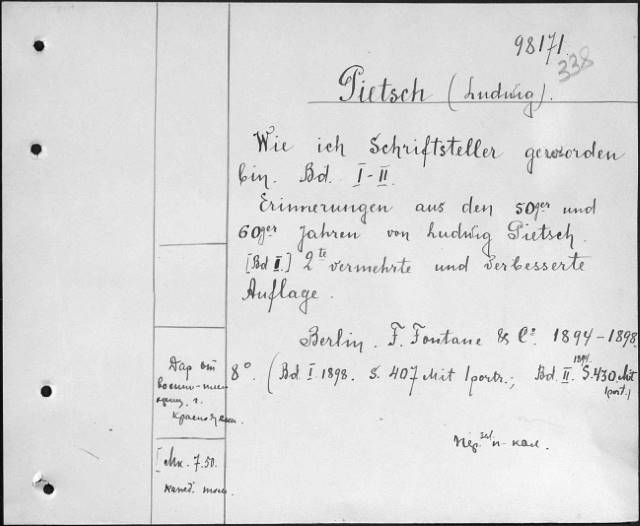 98171.
338
Pietsch (Ludwig).
Wie ich Schriftsteller geworden
bin. Bd. I-II.
Erinnerungen aus den 50ger und
60ger Jahren von Ludwig Pietsch.
[Bd II.] 2te vermehrte und verbesserte
Auflage.
Berlin. F. Fontane & Co. 1894-1898.
8°. (Bd. I. 1898. S. 407 Mit 1 portr.; Bd. II. 1894. S. 430. Mit
1 port.)
Дар от
военно-
г.
Мк. 7.50.